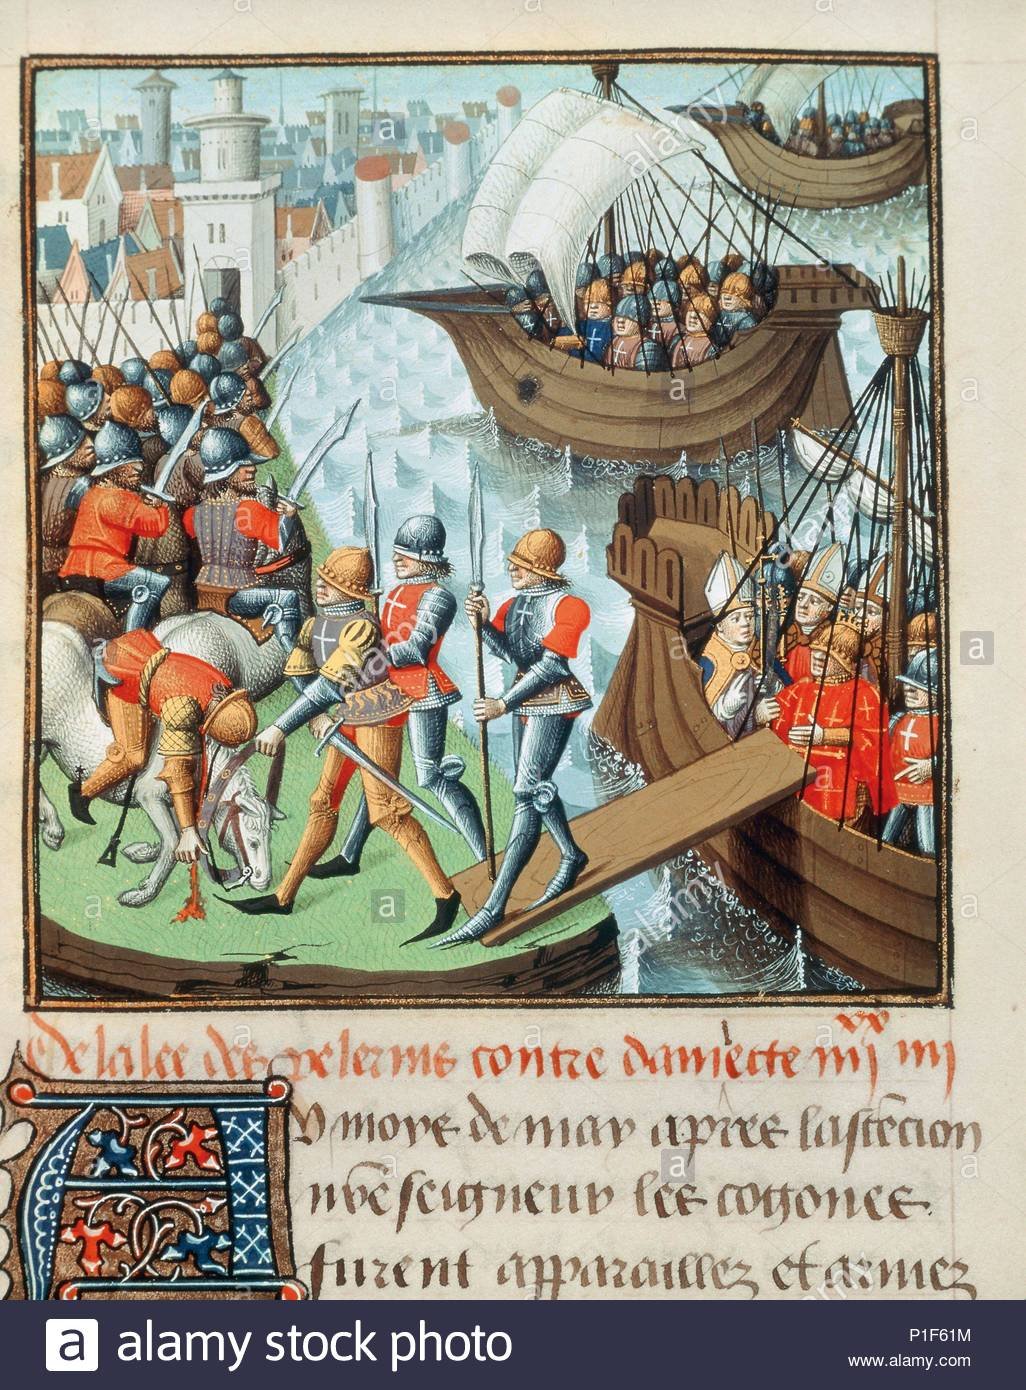 De lalee des pelerins contre damiecte iiii xx iiii
Au moys de may apres lascēcion
nr̄e seigneur les cogones
furent apparaillez et armez
a alamy stock photo
P1F61M
www.alamy.com